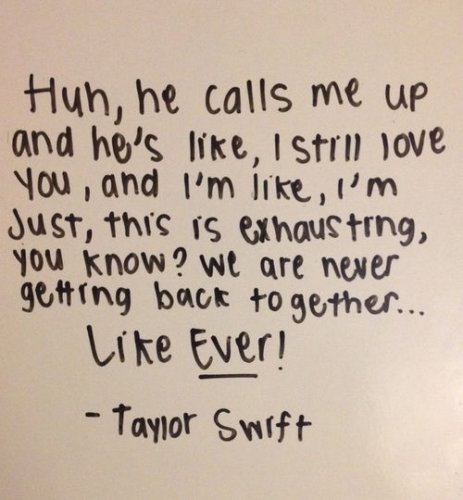 Huh, he calls me up
and he's like, I still love
you, and I'm like, I'm
Just, this is exhausting,
you know? we are never
getting back together...
Like Ever!
- Taylor Swift